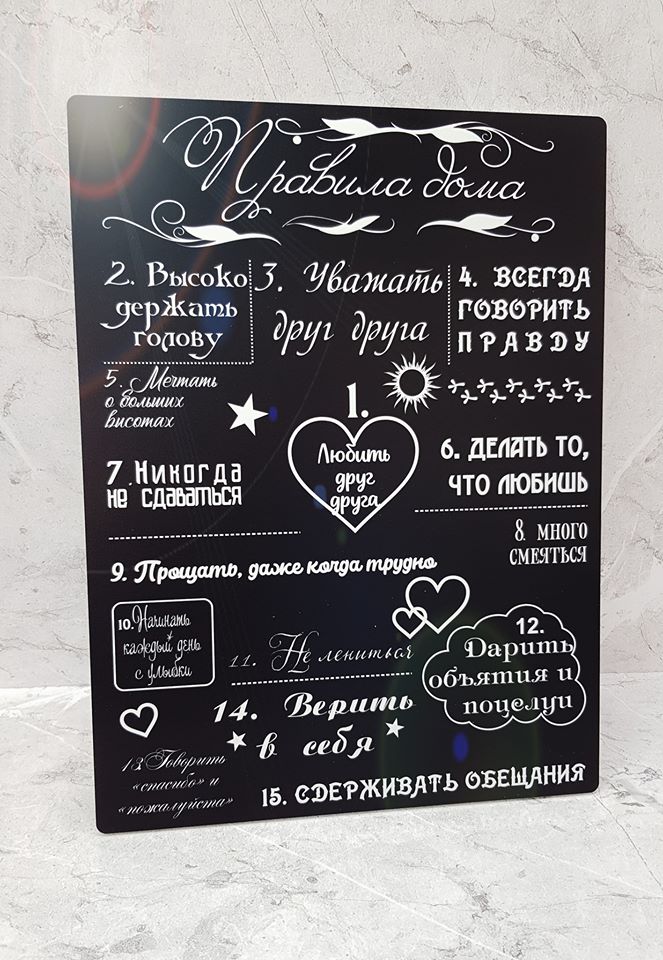 Правила дома
2. Высоко
держать
голову
3. Уважать
друг друга
4. ВСЕГДА
ГОВОРИТЬ
ПРАВДУ
5. Мечтать
о больших
висотах
1.
Любить
друг
друга
6. ДЕЛАТЬ ТО,
ЧТО ЛЮБИШЬ
7. Никогда
не сдаваться
8. МНОГО
СМЕЯТЬСЯ
9. Прощать, даже когда трудно
10. Начинать
каждый день
с улыбки
11. Не лениться
12.
Дарить
объятия и
поцелуи
14. Верить
в себя
13. Говорить
«спасибо» и
«пожалуйста»
15. СДЕРЖИВАТЬ ОБЕЩАНИЯ